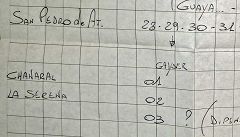 GUAYA
SAN PEDRO de AT. 28-29-30-31
CHAÑARAL 01
LA SERENA 02
03 ? (DIPEN